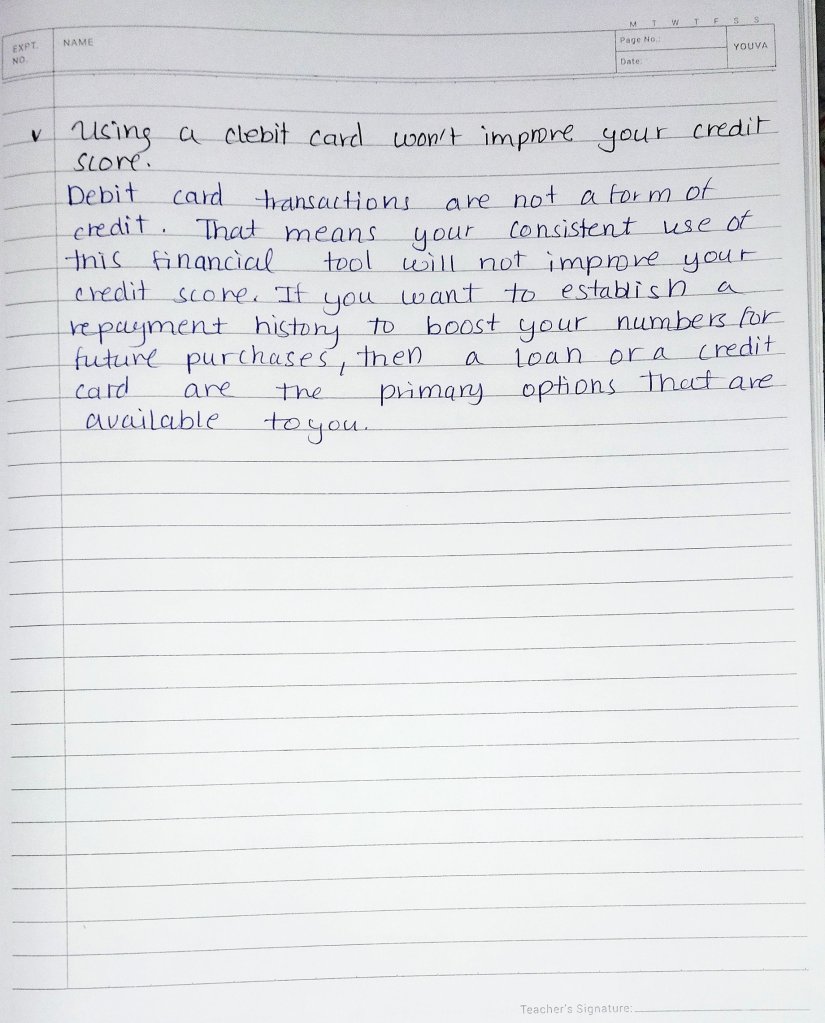 M T W T F S S
EXPT. NO.
NAME
Page No.:
YOUVA
Date:
v Using a debit card won't improve your credit
score.
Debit card transactions are not a form of
credit. That means your consistent use of
this financial tool will not improve your
credit score. If you want to establish a
repayment history to boost your numbers for
future purchases, then a loan or a credit
card are the primary options that are
available to you.
Teacher's Signature: